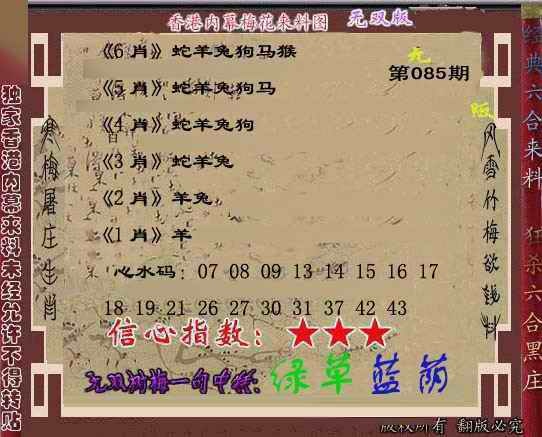 香港内幕梅花来料图 无双版
《6 肖》蛇羊兔狗马猴
无
第085期
《5 肖》蛇羊兔狗马
版
《4 肖》蛇羊兔狗
《3 肖》蛇羊兔
《2 肖》羊兔
《1 肖》羊
心水码: 07 08 09 13 14 15 16 17
18 19 21 26 27 30 31 37 42 43
信心指数: ★★★
无双梅一句中特: 绿草蓝荫
版权所有 翻版必究
独家香港内幕来料未经允许不得转贴
寒梅屠庄生肖
风雪竹梅欲钱料
经典六合来料
狂杀六合黑庄